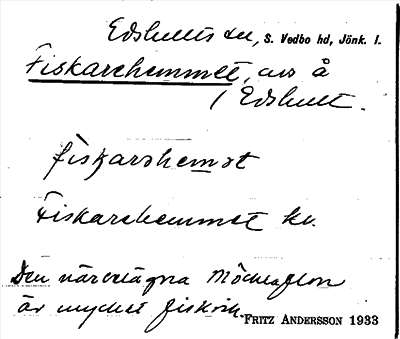 Edshults sn, S. Vedbo hd, Jönk. l.
Fiskarehemmet, avs å
1 Edshult.
fiskarehemet
Fiskarehemmet kv.
Den närbelägna
är mycket fiskrik.
FRITZ ANDERSSON 1933